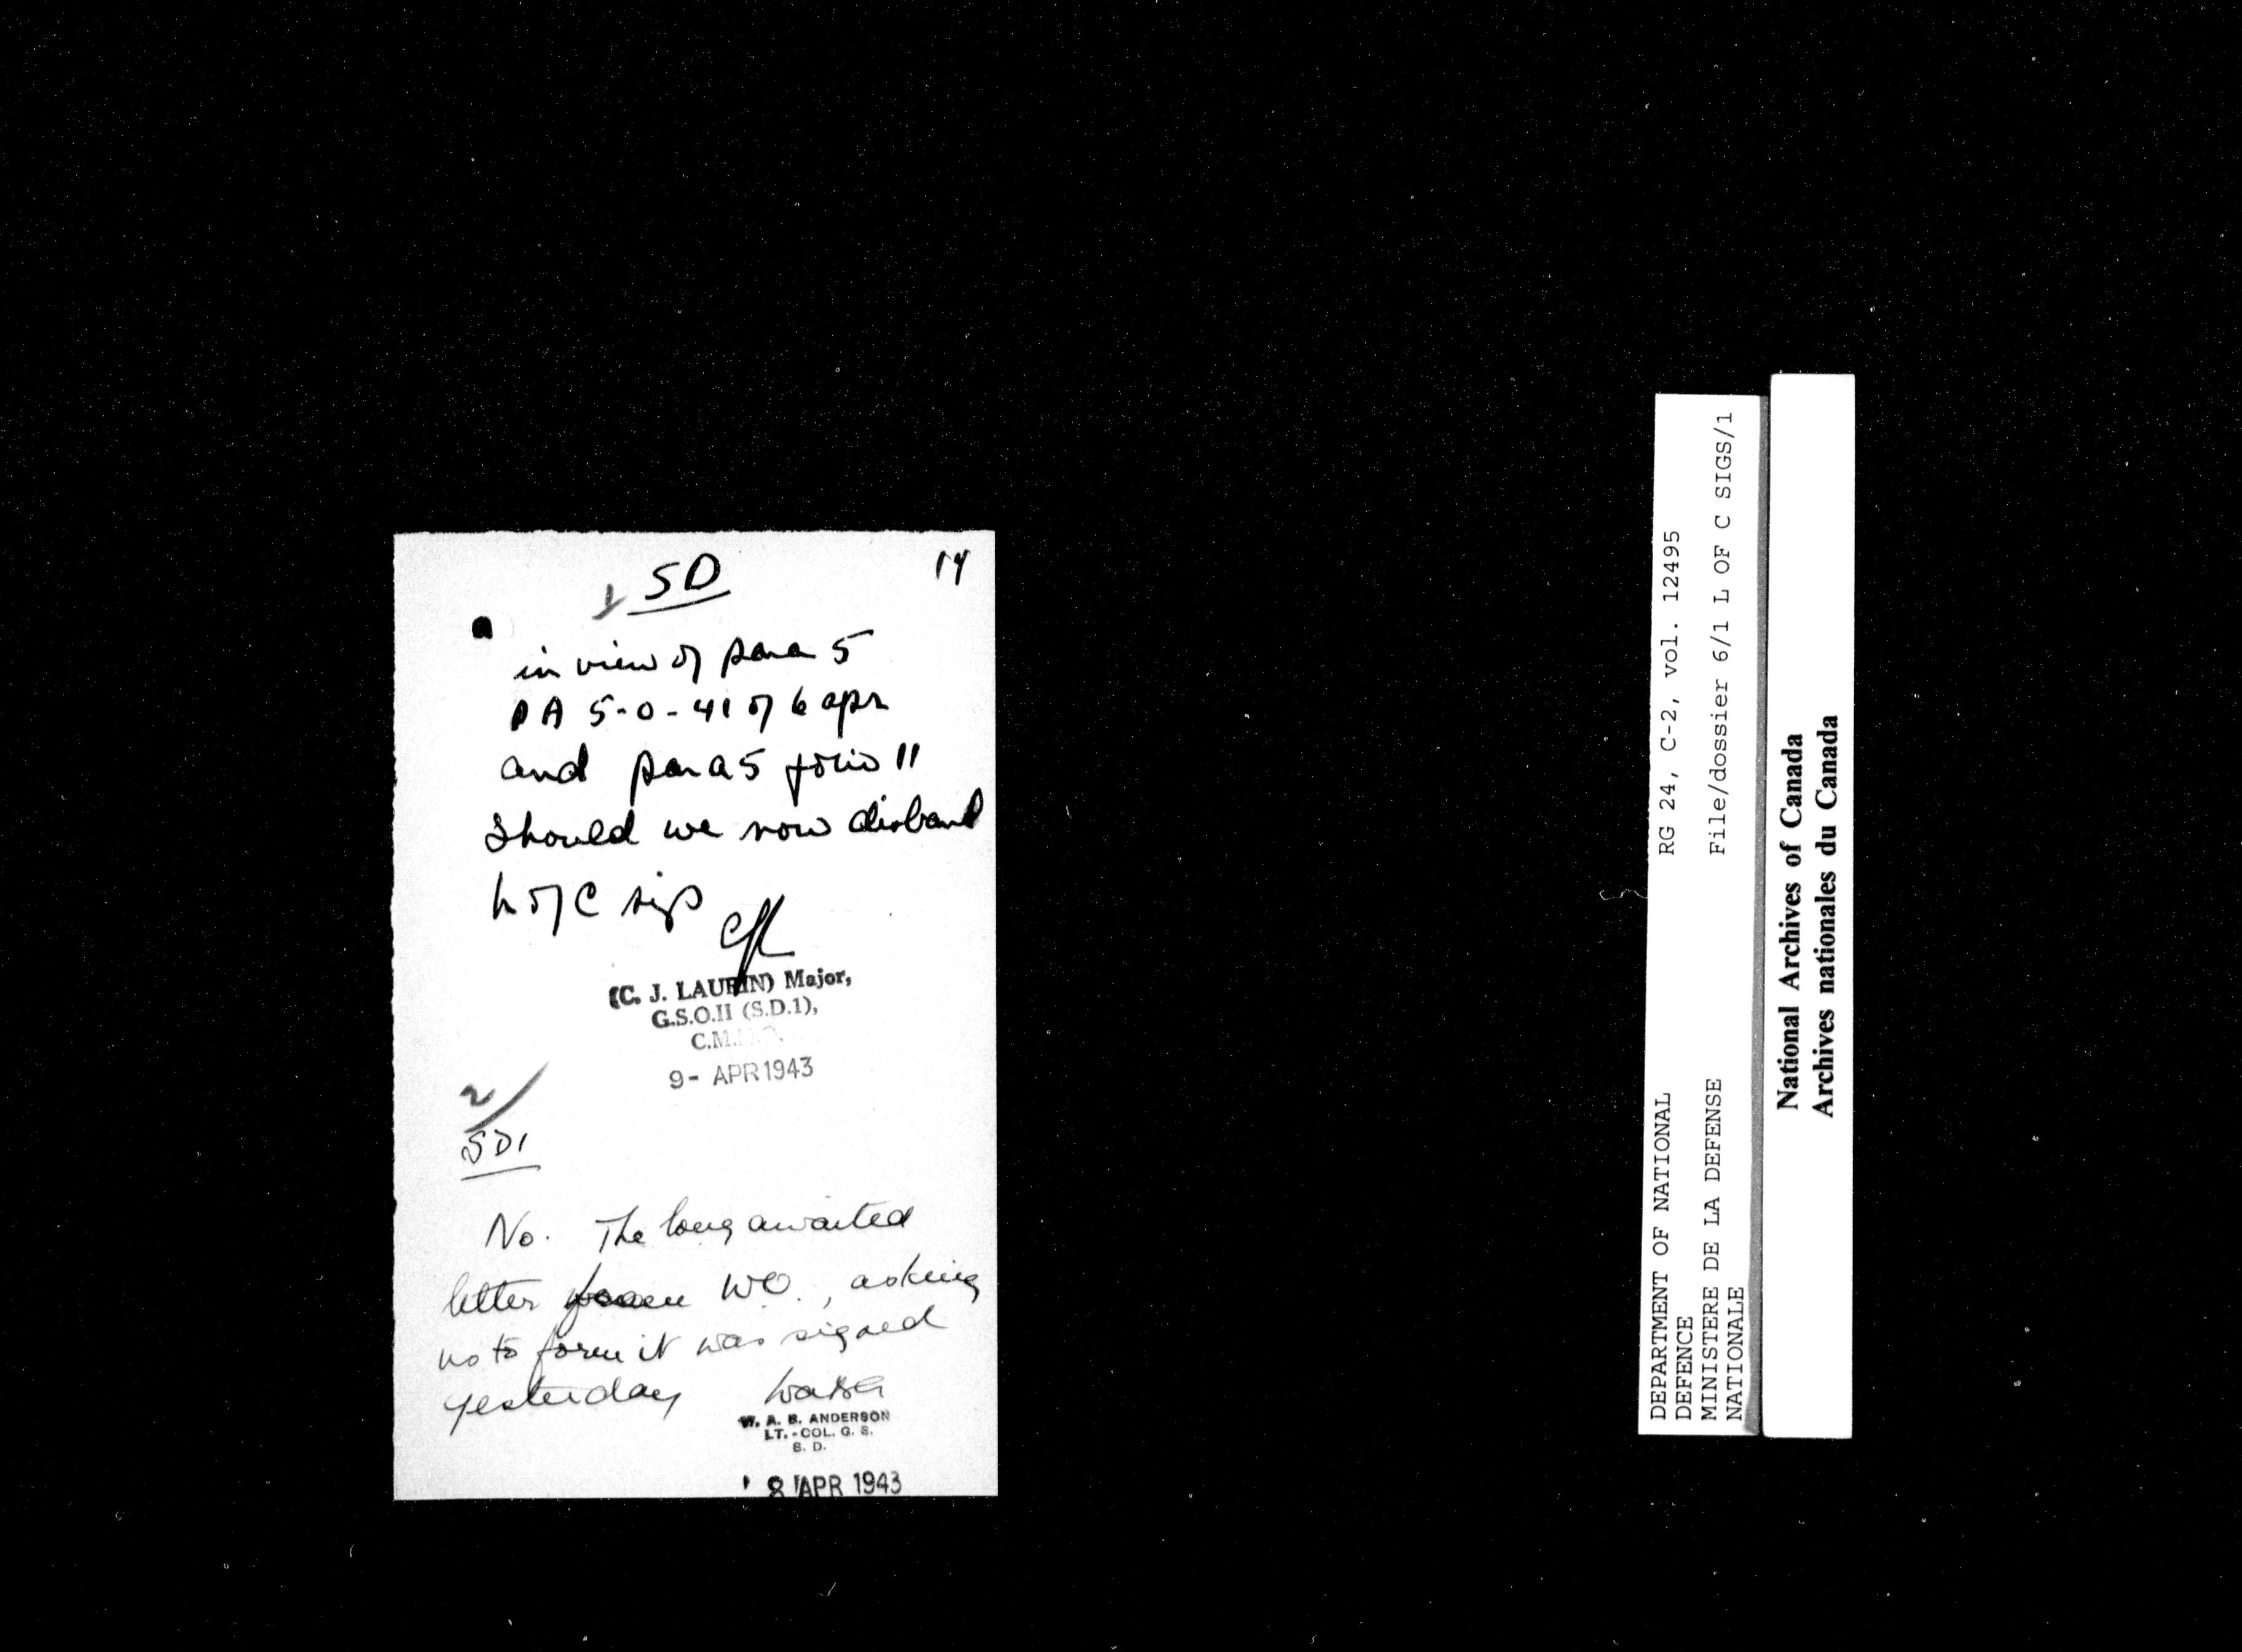 SD
14
1
in view of para 5
PA 5-0-41 of 6 apr
and para 5 folio 11
should we now disband
L of C sigs
CJL
(C. J. LAURIN) Major,
G.S.O.II (S.D.1),
C.M.H.Q.
9- APR 1943
2/
SD1
No. The long awaited
letter from WO., asking
us to form it was signed
yesterday WABA
W. A. B. ANDERSON
LT.-COL. G. S.
S. D.
8 APR 1943
DEPARTMENT OF NATIONAL
DEFENCE
MINISTERE DE LA DEFENSE
NATIONALE
RG 24, C-2, vol. 12495
File/dossier 6/1 L OF C SIGS/1
National Archives of Canada
Archives nationales du Canada